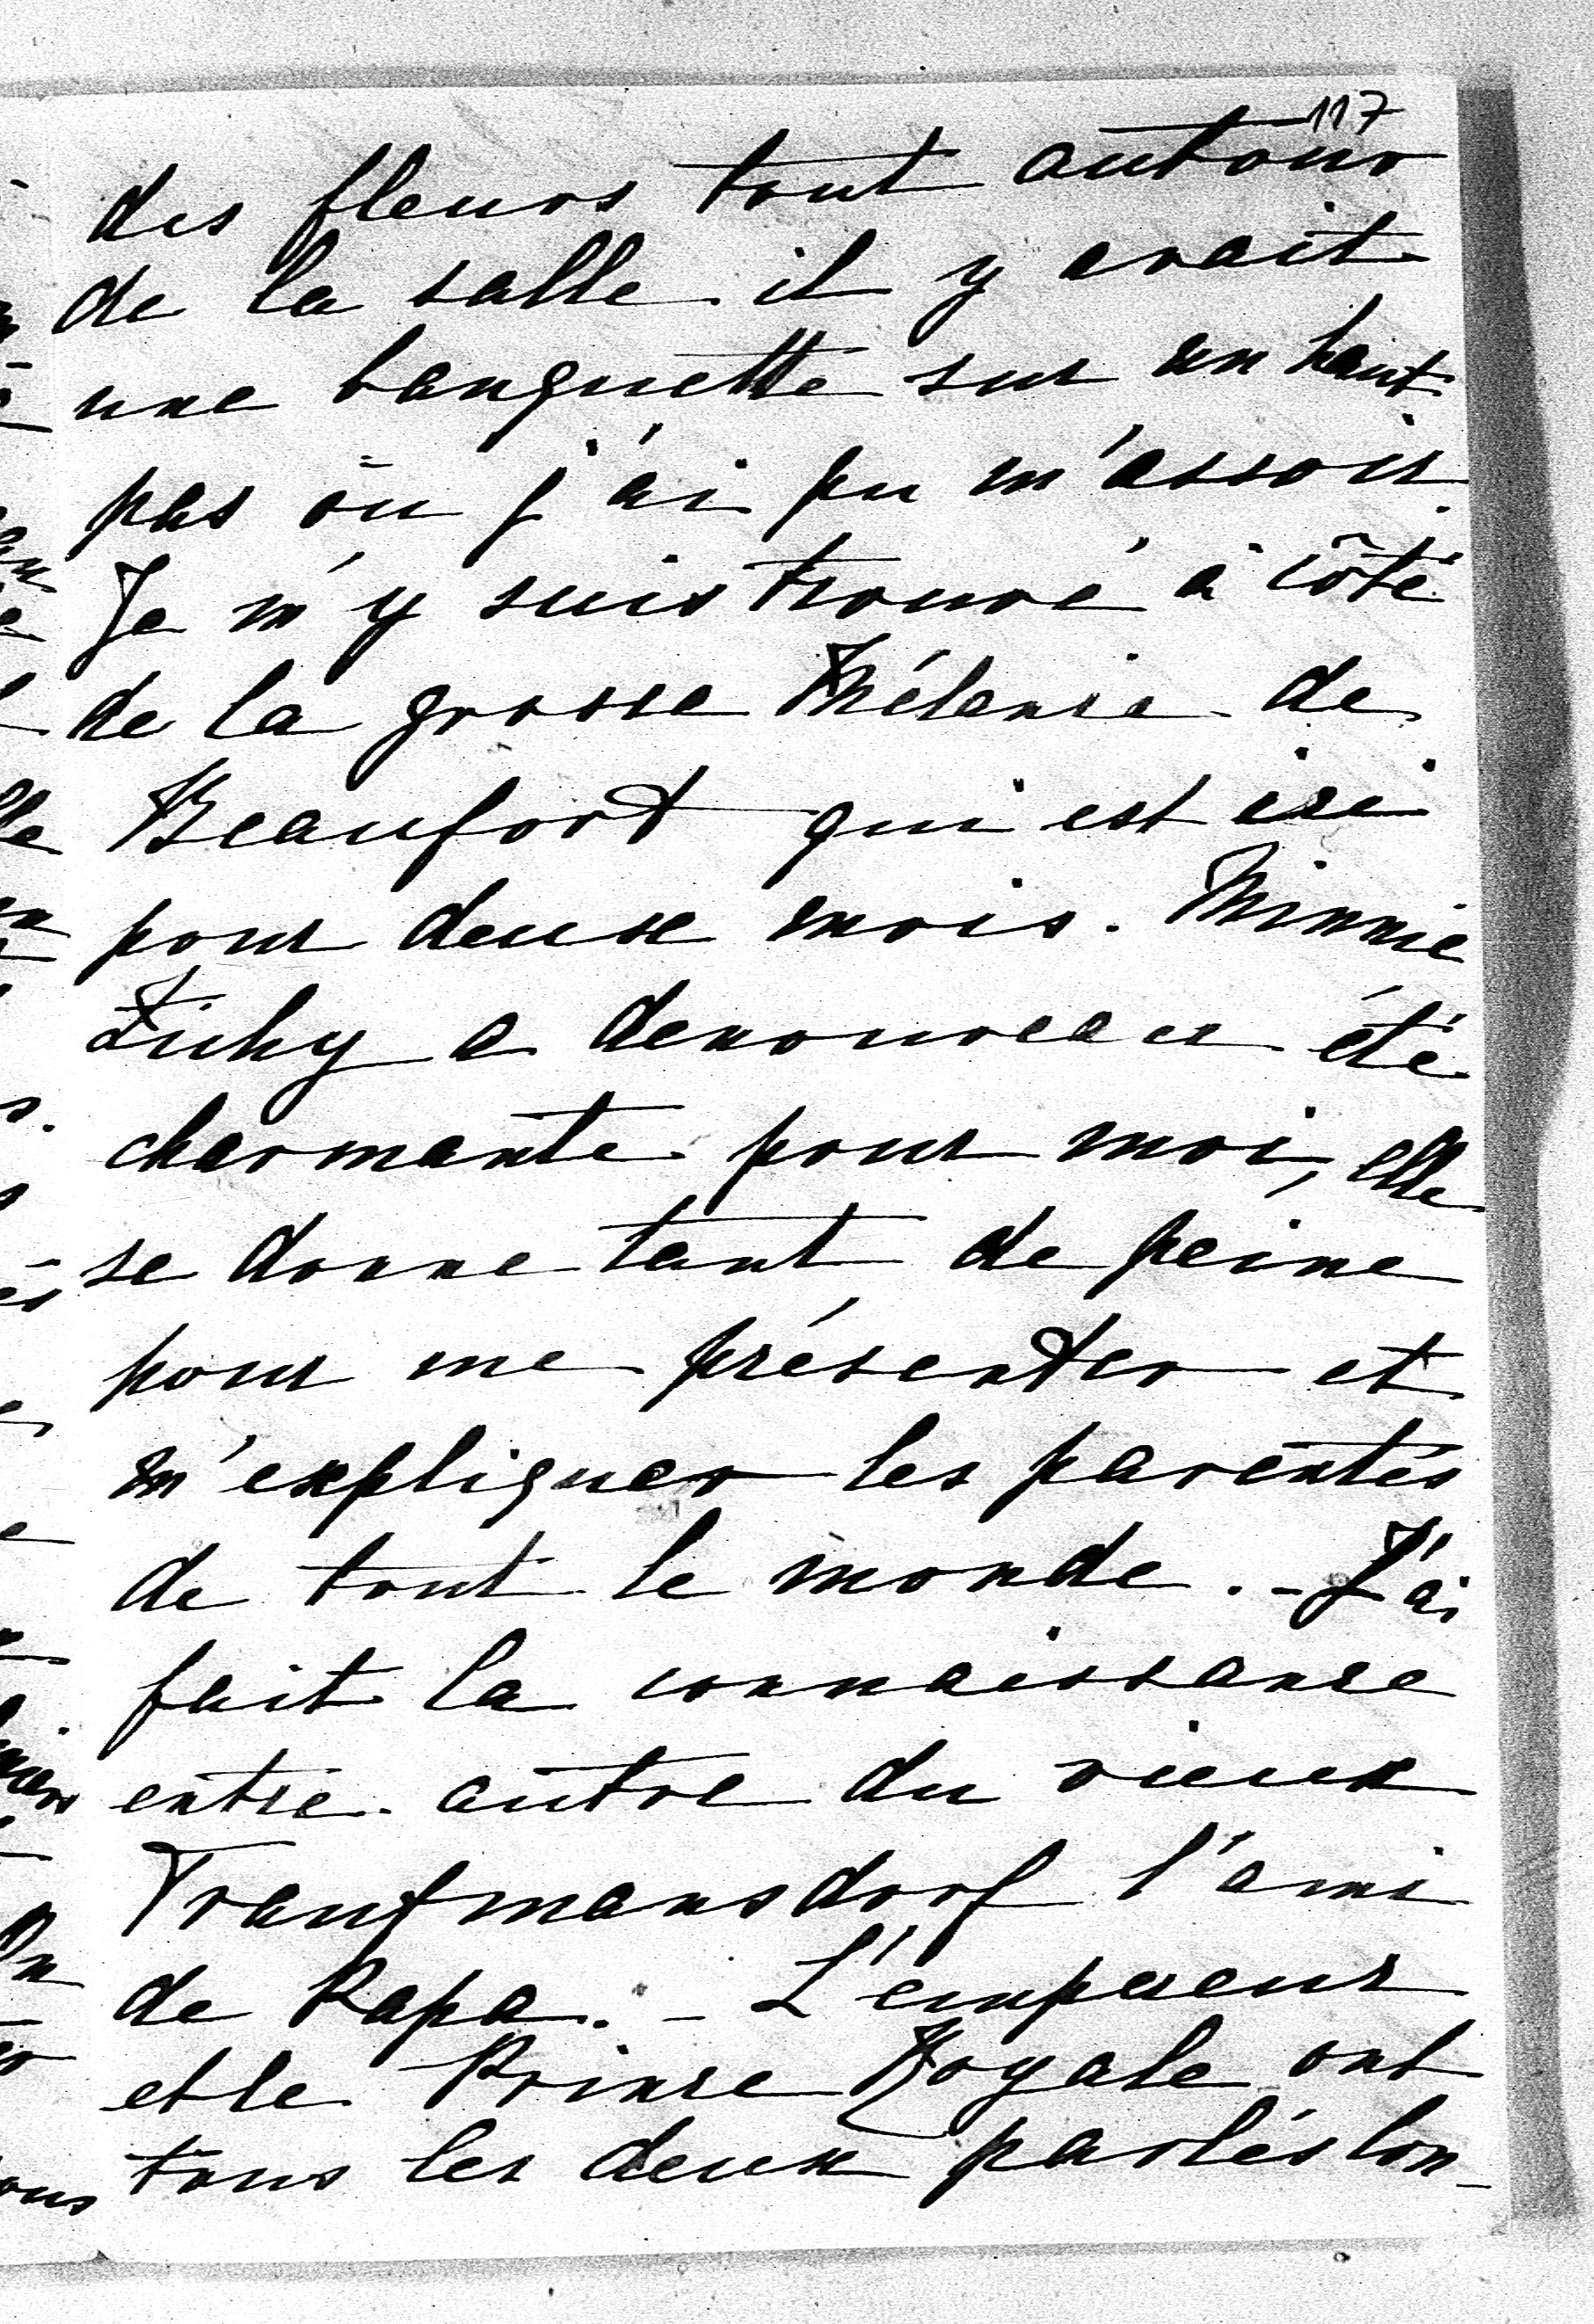 117
des fleurs tout autour
de la salle il y avait
une banquette sur un haut
pas où j'ai pu m'assoir.
Je m'y suis trouvé à côté
de la grosse Mélanie de
Beaufort qui est ici
pour deux mois. Minnie
Zichy a denouveau été
charmante pour moi, elle
se donne tant de peine
pour me présenter et
m'expliquer les parentés
de tout le monde. - J'ai
fait la connaissance
entre autre du vieux
Trautmansdorf l'ami
de Papa. - L'empereur
et le Prince Royale ont
tous les deux parlés lon-